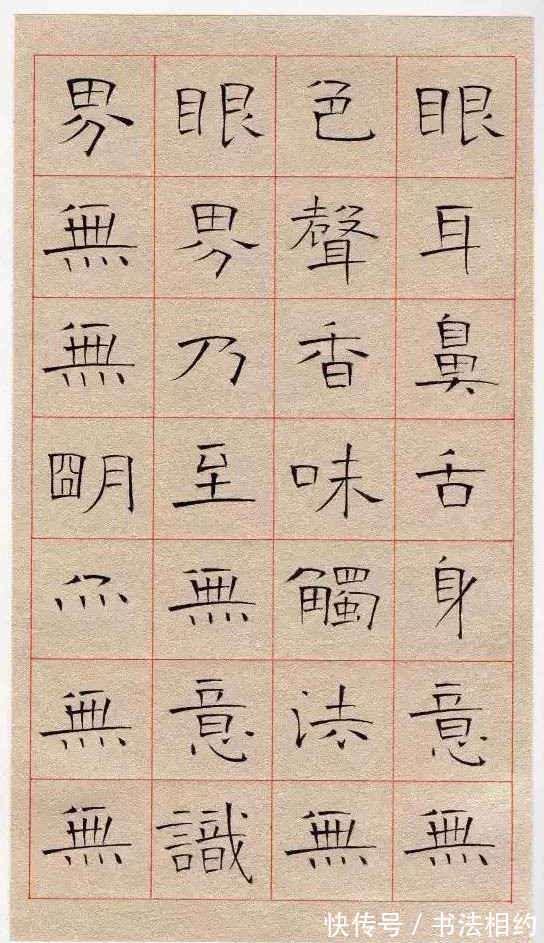 眼耳鼻舌身意無
色聲香味觸法無
眼界乃至無意識
界無無朙亦無無
快传号 / 书法相约